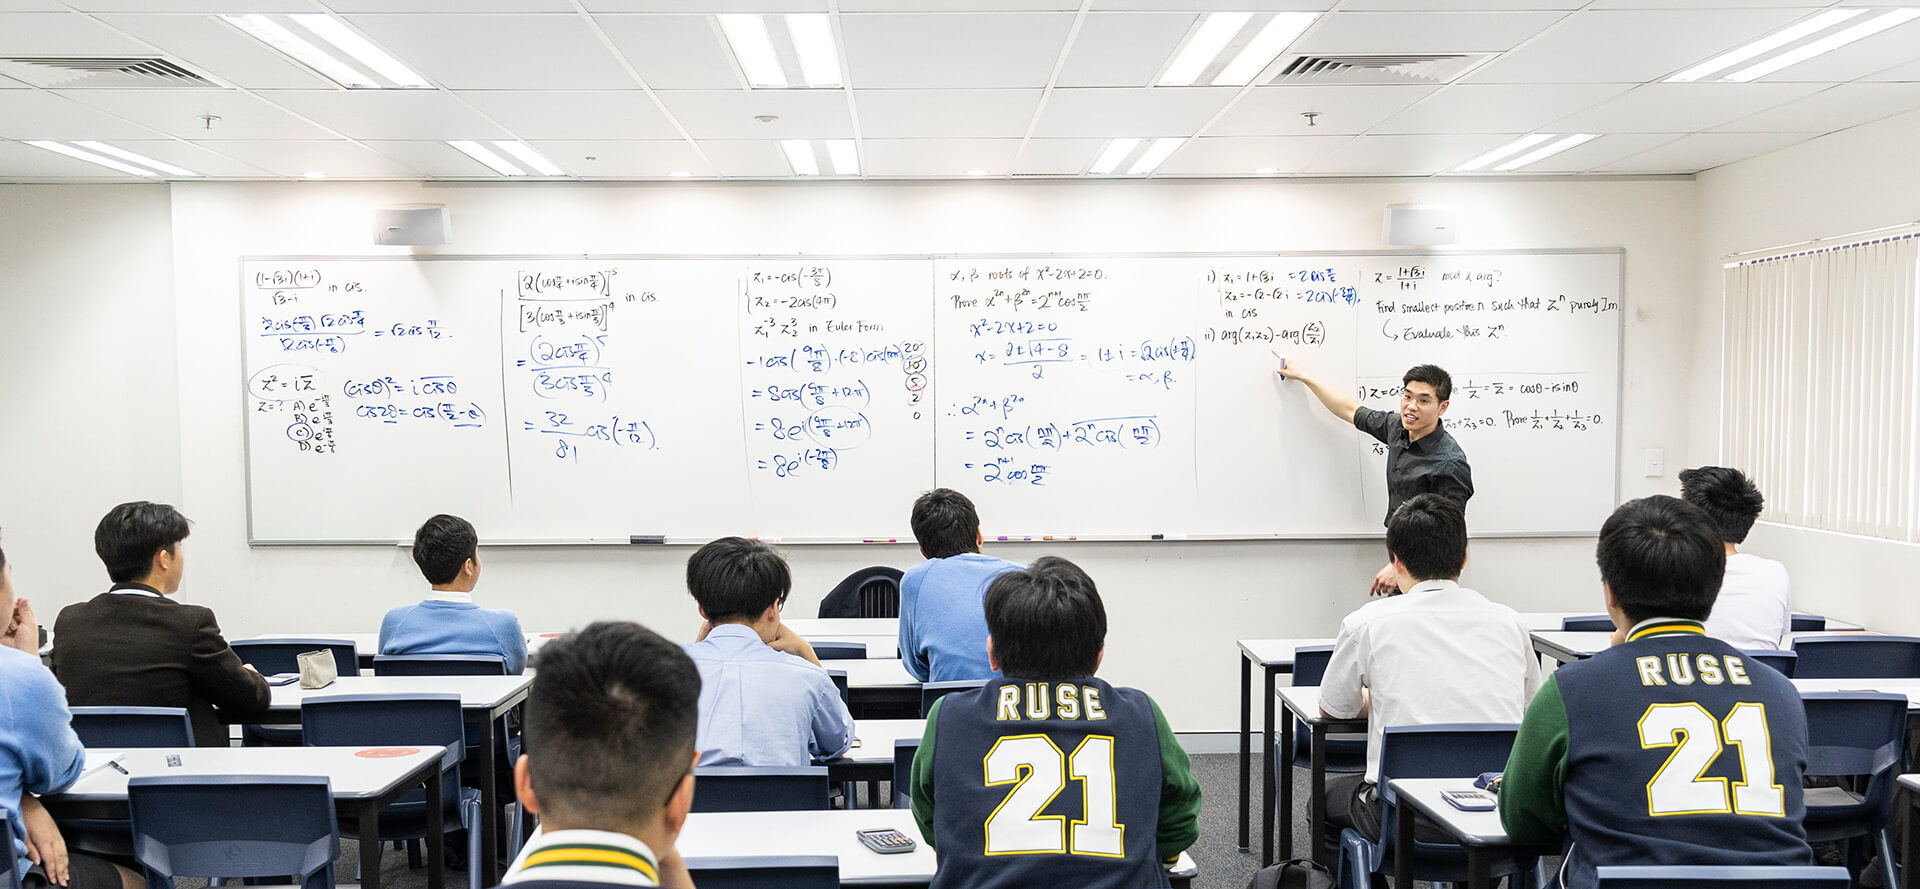 (1-√3i)(1+i)
√3-i
in cis.
= √2 cis π/12.
z² = i z̄
z=?
A) e
B) e
C) e
D) e
(cisθ)² = i c̄īs̄θ̄
cis2θ = cis(π/2 - θ)
[2(cos π/4 + i sin π/4)]⁵
[3(cos π/3 + i sin π/3)]⁴
in cis.
= (2cis π/4)⁵
(3cis π/3)⁴
= 32
81
cis(-π/12).
z₁ = -cis(-3π/8)
z₂ = -2cis(4π)
z₁⁻³ z₂³ in Euler Form
-1cis(9π/8)·(-8)cis(12π)
= 8cis(9π/8 + 12π)
= 8e^i(9π/8 + 12π)
= 8e^i(-7π/8)
20
10
5
2
0
α, β roots of x²-2x+2=0.
Prove α²ⁿ+β²ⁿ = 2ⁿ⁺¹ cos nπ/2
x²-2x+2=0
x = 2±√4-8 / 2 = 1±i = √2cis(±π/4)
= α, β.
∴ α²ⁿ+β²ⁿ
= 2ⁿcis(nπ/2) + 2ⁿcis(nπ/2)
= 2ⁿ⁺¹cos nπ/2
i) z₁ = 1+√3i = 2cis π/3
z₂ = -√2-√2i = 2cis(-3π/4)
in cis
ii) arg(z₁z₂) - arg(z₂/z₁)
z = 1+√3i / 1+i mod & arg?
Find smallest positive n such that zⁿ purely Im
↳ Evaluate this zⁿ.
i) z = cis
1/z = z̄ = cosθ - isinθ
z₂+z₃=0. Prove 1/z₁ + 1/z₂ + 1/z₃ = 0.
z₃
RUSE
21
RUSE
21